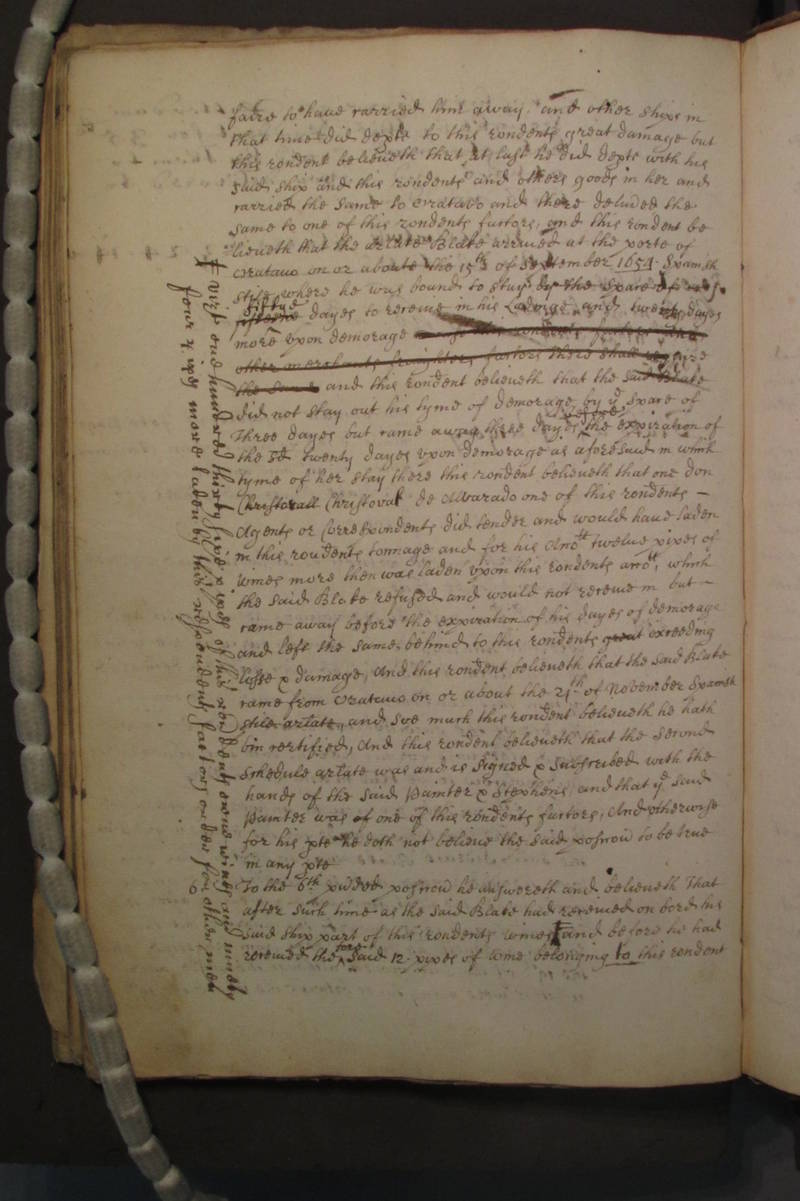 faire to have carried him away, and other ships in
that time did depte to this rondents great damage but
this rondent believeth that at last he did depte with his
said ship and this rondents and others goods in her and
carried the same to Oratavo and there delivered the
same to one of this rondents factors, and this rondent be
lieveth that the arlate Blake arrived at the porte of
Oratavo on or aboute the 15th of September 1654 Spanish
stile where he was bound to stay by the space of
fiftie dayes to receive in his Ladeinge and twenty dayes
more upon demorage
other merchants freighters factors there shall
the same and this rondent believeth that the said Blake
did not stay out his tyme of demorage by ye space of
Three dayes but came away three dayes before the expiration of
the sd twenty dayes upon demorage as aforesaid in which
tyme of her stay there this rondent believeth that one Don
Christovall Christoval de Alvarado one of this rondents
Agents or Correspondents did tender and would have laden
in this rondents tonnage and for his Anott twelve pipes of
wines more then was laden upon this rondents arrott, which
the said Blake refused and would not receive in but
came away before the expiration of his dayes of demorage
and left the same behind to this rondents great exceeding
losse & damage, And this rondent believeth that the said Blake
came from Oratavo on or about the 21th of November Spanish
stile arlate, and soe much this rondent believeth he hath
bin certified, And this rondent believeth that the second
schedule arlate was and is signed & subscribed with the
hands of the said Painter & Stephens, and that ye said
Painter was one of this rondents factors, And otherwise
for his pte he doth not believe the said posicon to be true
in any pte
6 To the 6th posicon he answereth and believeth That
after such time as the said Blake had received on bord his
said ship part of this rondents wines and before he had
received the fore said 12 pipes of wine belonging to this rondent
vizt one hundred thirty five pipes of this rondents owne wines and ninety
four pipes more laden by this respondents factors order for other men